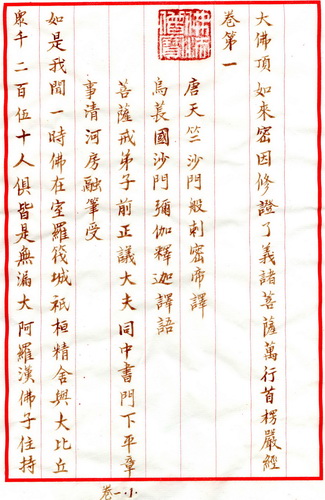 大佛頂如來密因修證了義諸菩薩萬行首楞嚴經
卷第一
唐天竺沙門般剌密帝譯
烏萇國沙門彌伽釋迦譯語
菩薩戒弟子前正議大夫同中書門下平章
事清河房融筆受
如是我聞一時佛在室羅筏城祇桓精舍與大比丘
眾千二百伍十人俱皆是無漏大阿羅漢佛子住持
卷一.小.